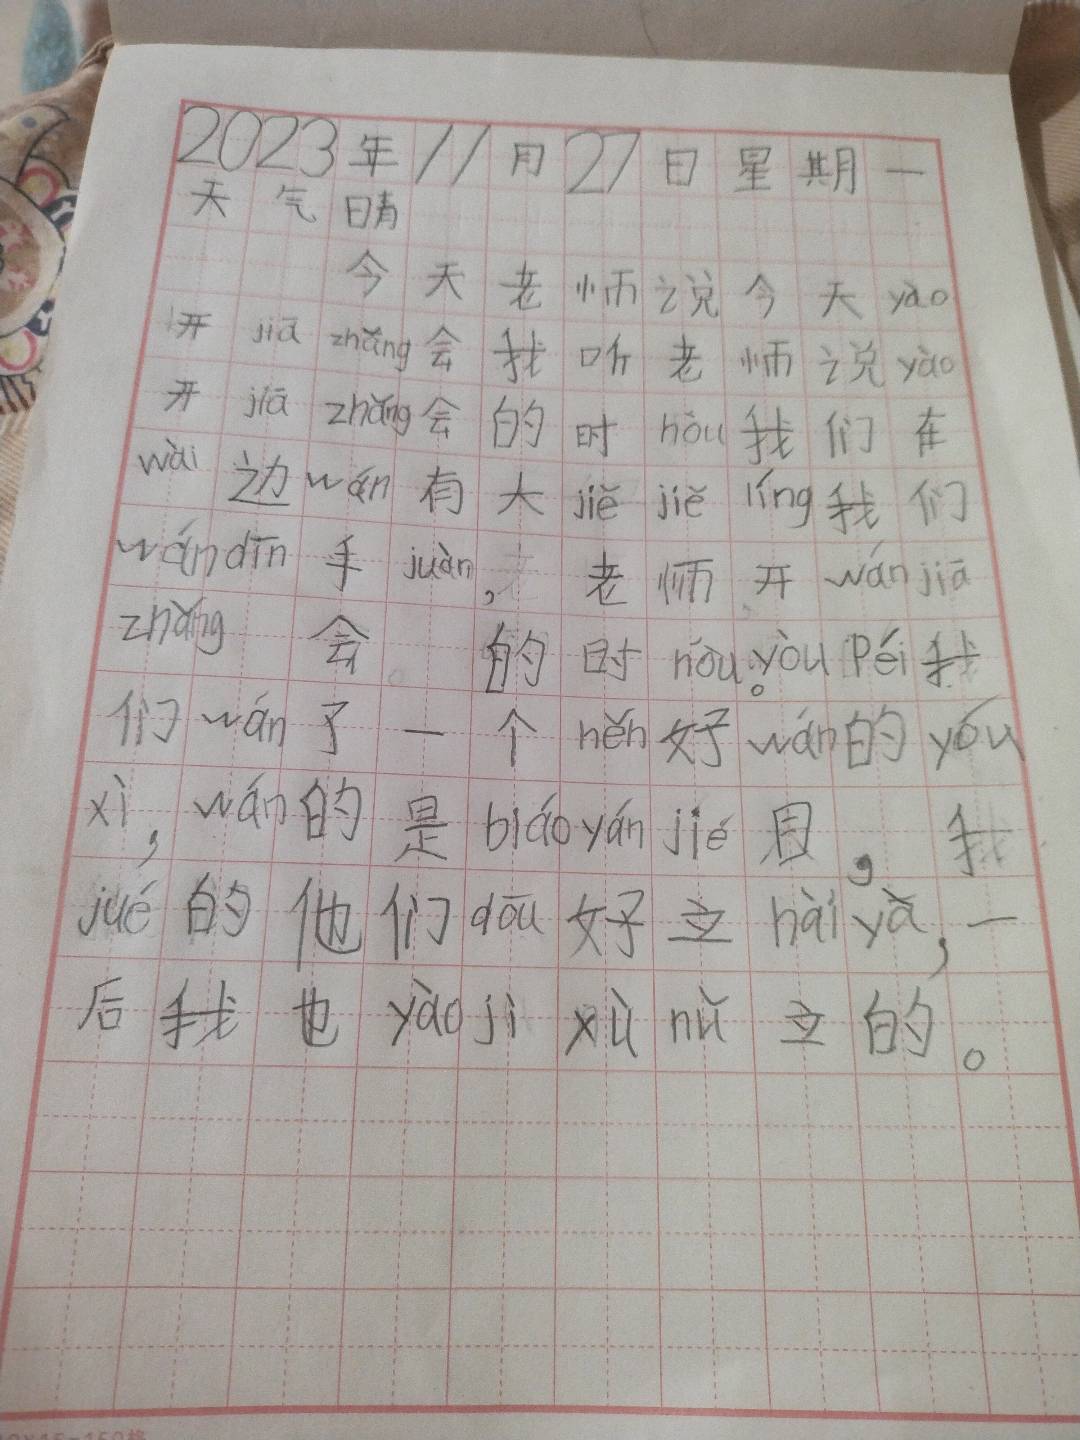 2023年11月27日星期一
天气晴
今天老师说今天yào
开jiā zhǎng会我听老师说yào
开jiā zhǎng会的时hòu我们在
wài边wán有大jiě jiě líng我们
wán dīn手juàn，老师开wán jiā
zhǎng会的时hòu。yòu Péi我
们wán了一个hěn好wán的yóu
xì，wán的是biáo yán jié 目，我
jué的他们dōu好立hài yǎ，一
后我也yào jì xù nǔ立的。